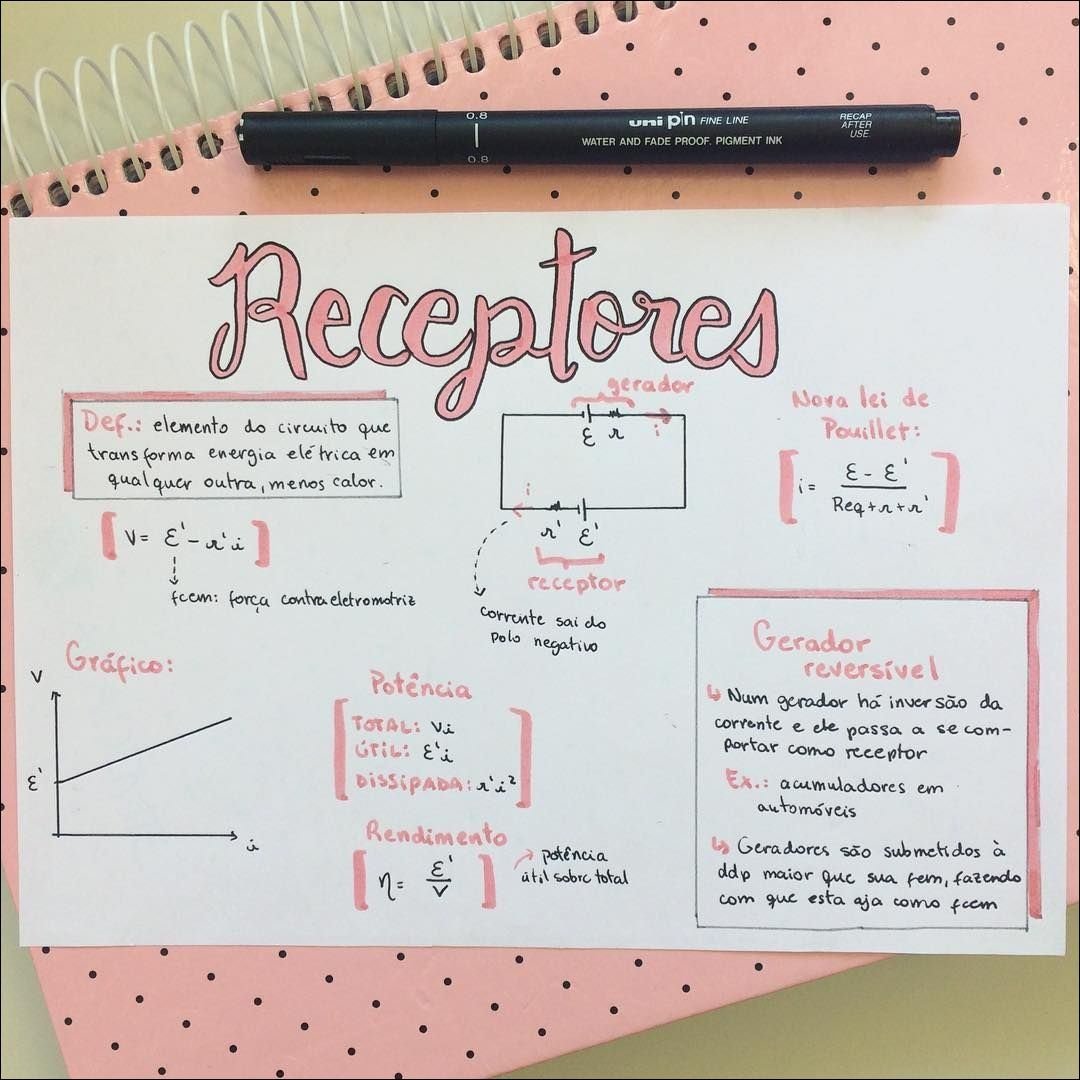 0.8
0.8
uni pin FINE LINE
WATER AND FADE PROOF. PIGMENT INK
RECAP
AFTER
USE.
Receptores
Def.: elemento do circuito que
transforma energia elétrica em
qualquer outra, menos calor.
V= ε' - r'i
fcem: força contraeletromotriz
gerador
ε r
i
i
r' ε'
receptor
corrente sai do
polo negativo
Nova lei de
Pouillet:
i= ε - ε'
Req + r + r'
Gráfico:
V
ε'
i
Potência
TOTAL: Vi
ÚTIL: ε'i
DISSIPADA: r'i²
Rendimento
η= ε'
V
potência
útil sobre total
Gerador
reversível
↳ Num gerador há inversão da
corrente e ele passa a se com-
portar como receptor
Ex.: acumuladores em
automóveis
↳ Geradores são submetidos à
ddp maior que sua fem, fazendo
com que esta aja como fcem